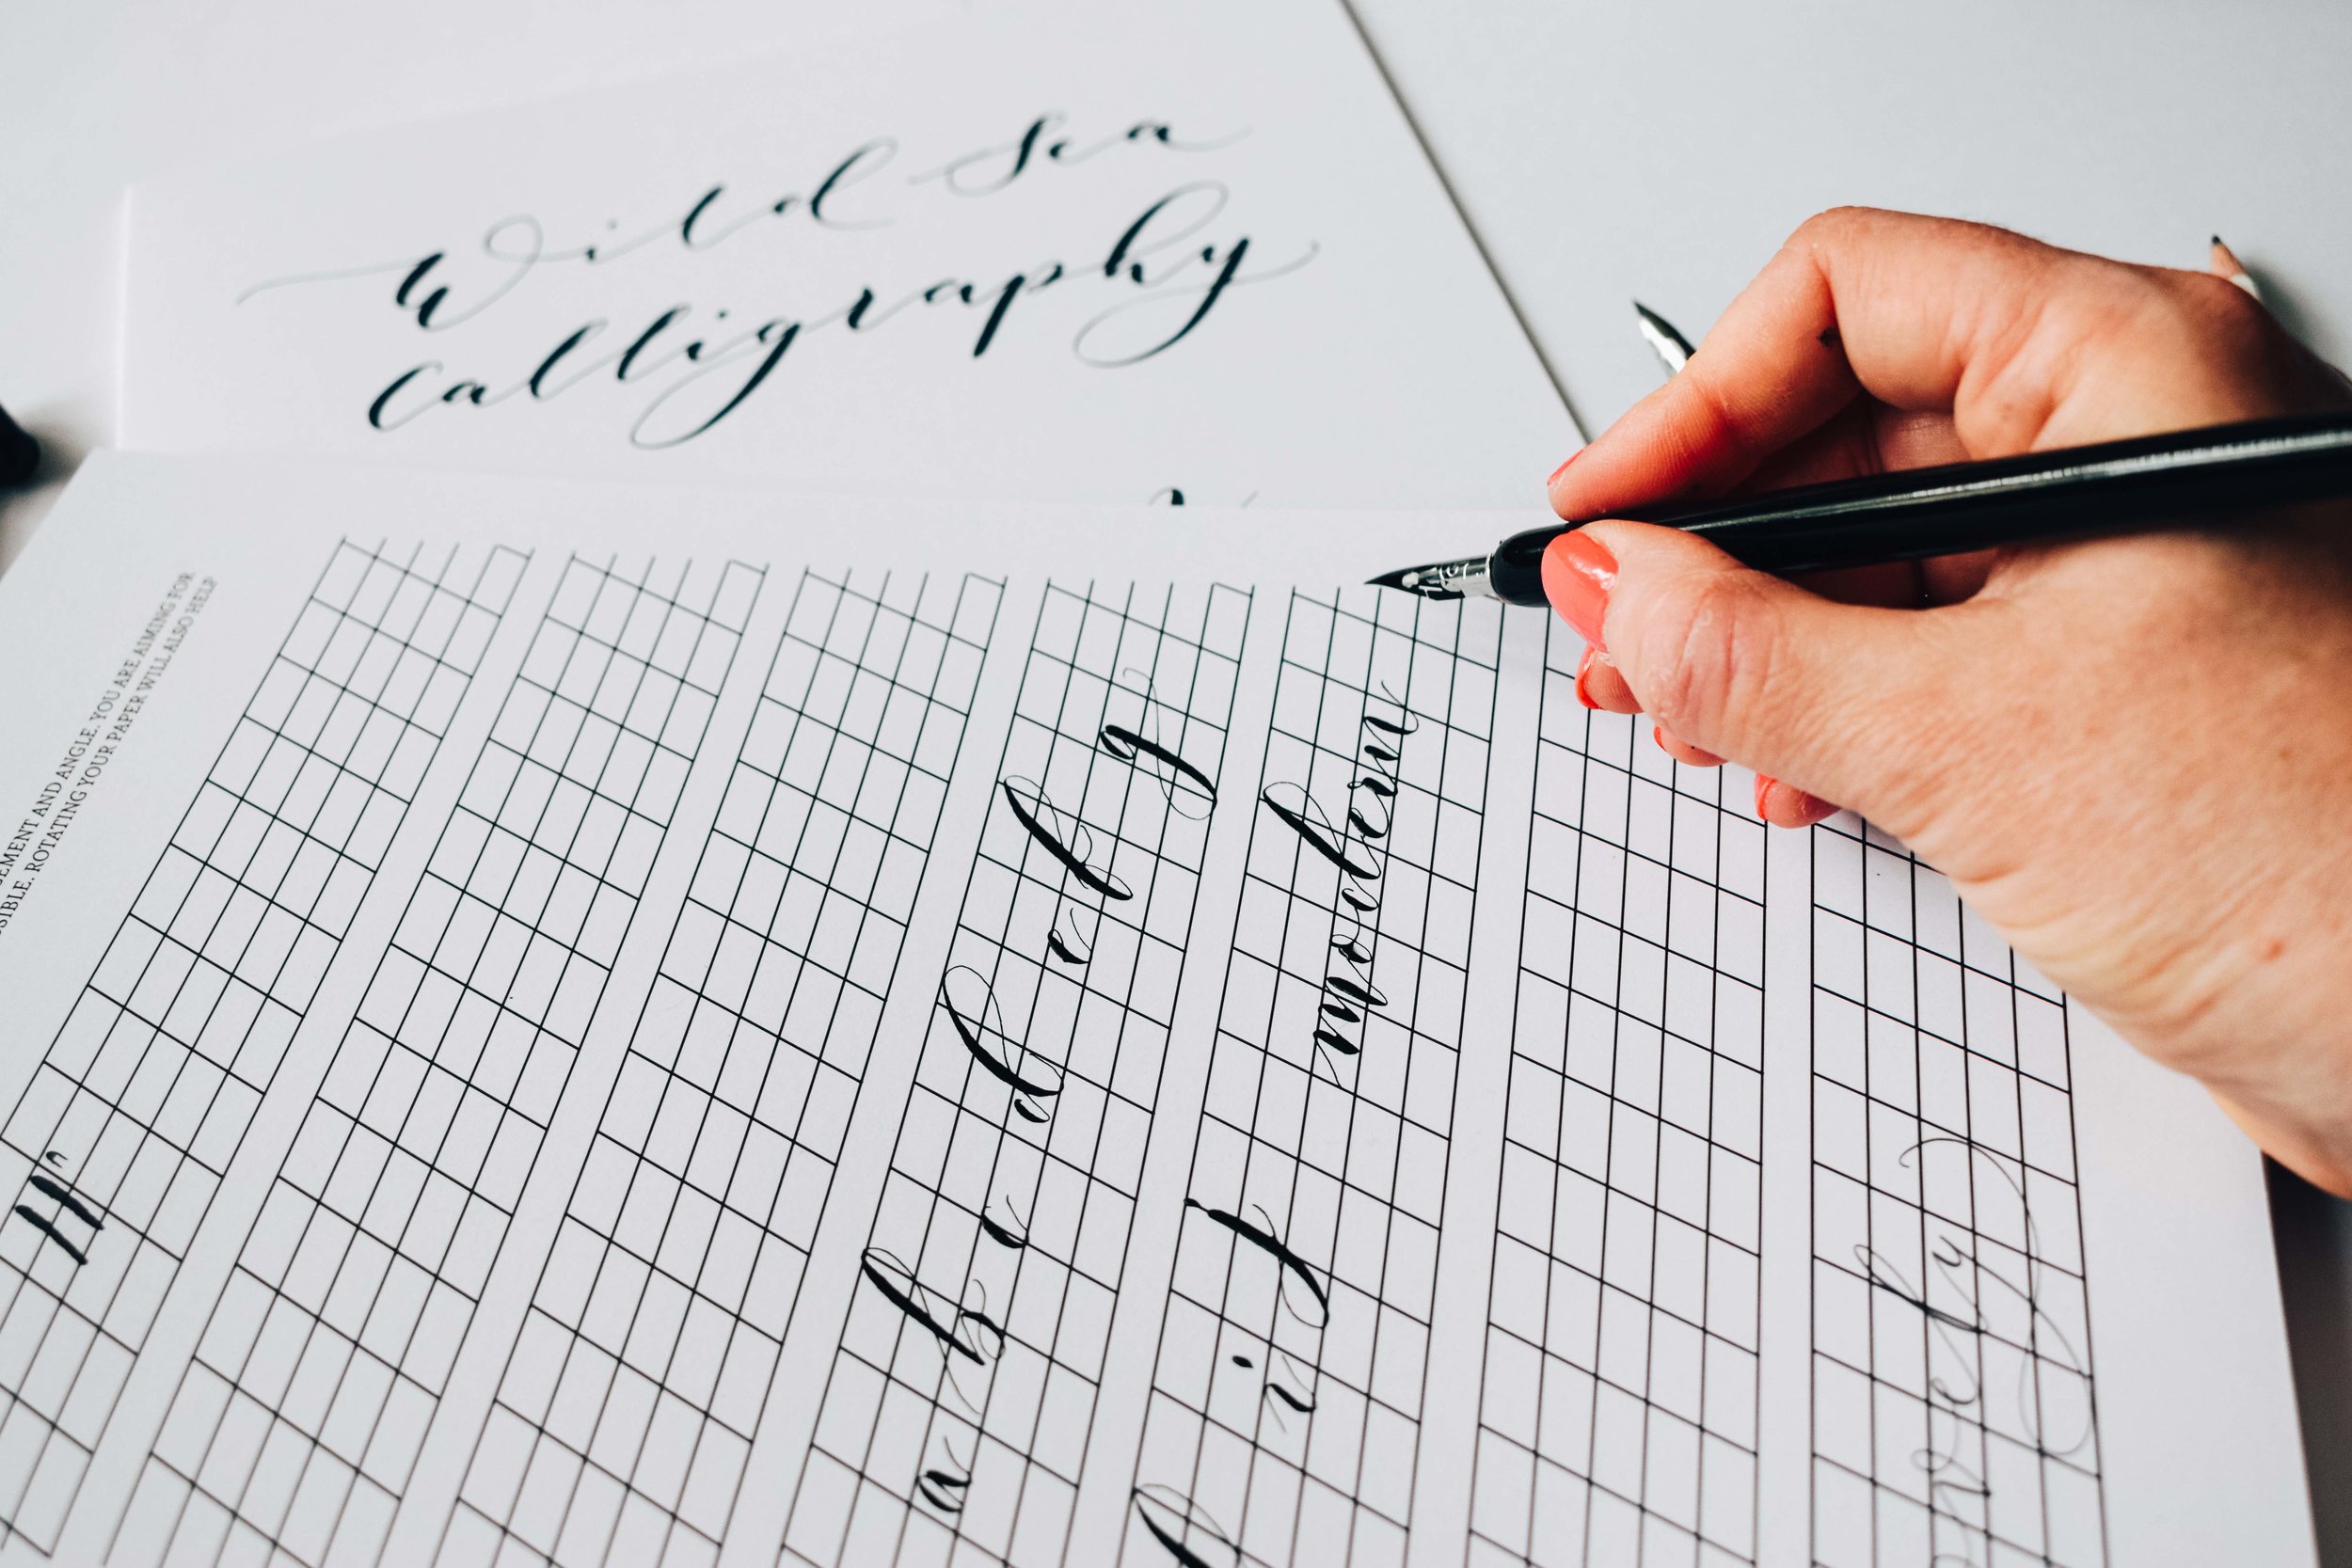 Wild Sea
Calligraphy
EMENT AND ANGLE. YOU ARE AIMING FOR
SSIBLE. ROTATING YOUR PAPER WILL ALSO HELP
a b c d e f g
h i j
modern